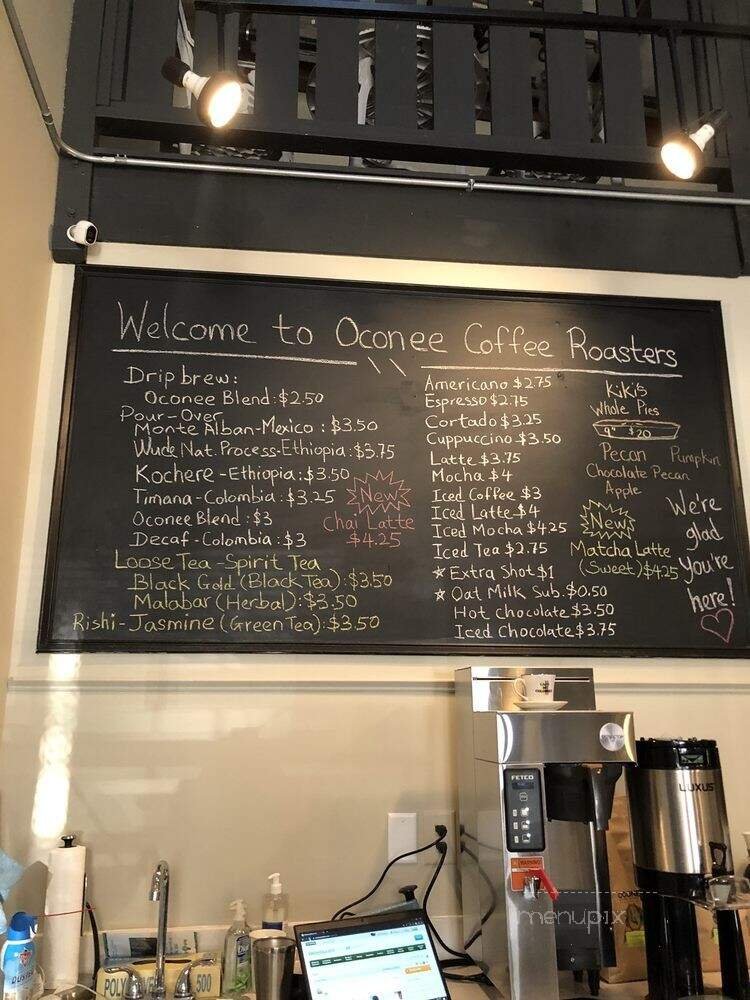 Welcome to Oconee Coffee Roasters
Drip brew:
Oconee Blend: $2.50
Pour-Over
Monte Alban-Mexico: $3.50
Wude Nat. Process-Ethiopia: $3.75
Kochere - Ethiopia: $3.50
Timana - Colombia: $3.25
Oconee Blend: $3
Decaf - Colombia: $3
New
Chai Latte
$4.25
Loose Tea - Spirit Tea
Black Gold (Black Tea): $3.50
Malabar (Herbal): $3.50
Rishi - Jasmine (Green Tea): $3.50
Americano $2.75
Espresso $2.75
Cortado $3.25
Cuppuccino $3.50
Latte $3.75
Mocha $4
Iced Coffee $3
Iced Latte $4
Iced Mocha $4.25
Iced Tea $2.75
☆ Extra Shot $1
☆ Oat Milk Sub. $0.50
Hot Chocolate $3.50
Iced Chocolate $3.75
Kiki's
Whole Pies
9" $20
Pecan Pumpkin
Chocolate Pecan
Apple
New
Matcha Latte
(Sweet) $4.25
We're
glad
you're
here!
FETCO
WARNING
LUXUS
menupix
POLY
500